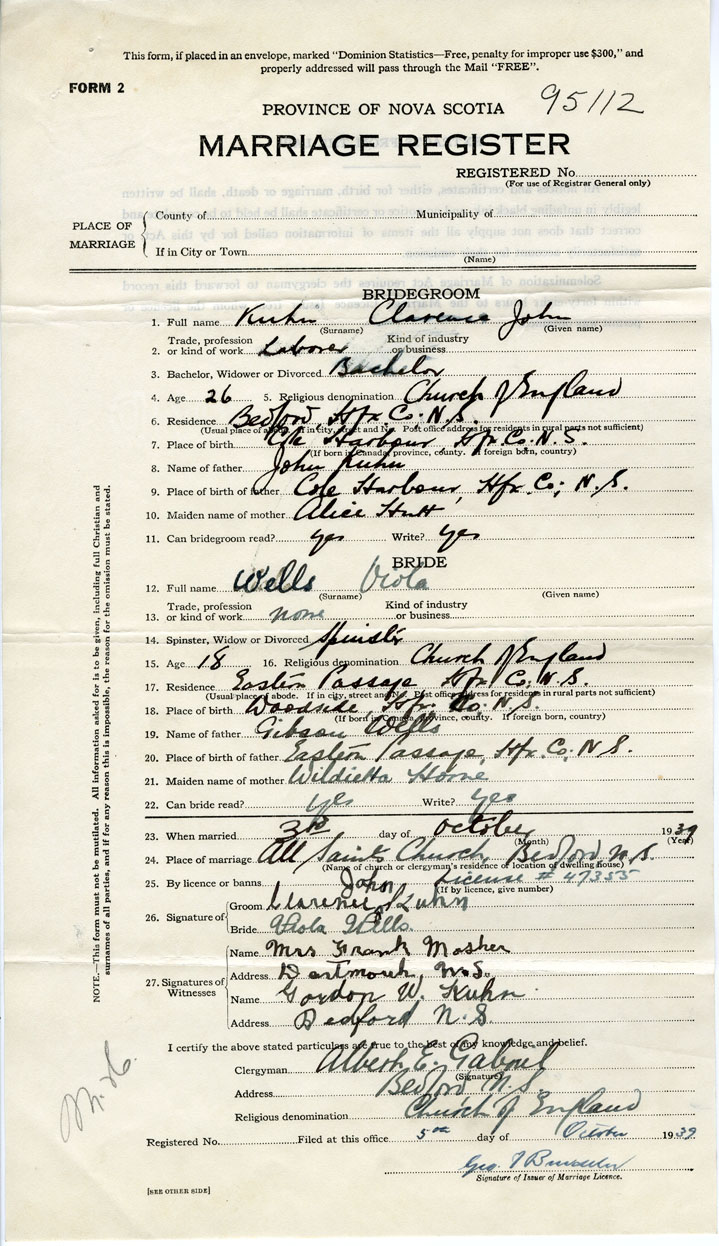 This form, if placed in an envelope, marked "Dominion Statistics—Free, penalty for improper use $300," and
properly addressed will pass through the Mail "FREE".
FORM 2
95112
PROVINCE OF NOVA SCOTIA
MARRIAGE REGISTER
REGISTERED No.
(For use of Registrar General only)
PLACE OF MARRIAGE
County of Municipality of
If in City or Town
(Name)
BRIDEGROOM
1. Full name Kuhn Clarence John
(Surname) (Given name)
2. Trade, profession or kind of work Laborer Kind of industry or business
3. Bachelor, Widower or Divorced Bachelor
4. Age 26 5. Religious denomination Church of England
6. Residence Bedford, Hfx. Co. N.S.
(Usual place of abode. If in city, street and No. Post office address for residents in rural parts not sufficient)
7. Place of birth Cole Harbour Hfx. Co. N.S.
(If born in Canada, province, county. If foreign born, country)
8. Name of father John Kuhn
9. Place of birth of father Cole Harbour, Hfx. Co; N.S.
10. Maiden name of mother Alice Hutt
11. Can bridegroom read? yes Write? yes
BRIDE
12. Full name Wells Viola
(Surname) (Given name)
13. Trade, profession or kind of work none Kind of industry or business
14. Spinster, Widow or Divorced Spinster
15. Age 18 16. Religious denomination Church of England
17. Residence Eastern Passage Hfx. Co. N.S.
(Usual place of abode. If in city, street and No. Post office address for residents in rural parts not sufficient)
18. Place of birth Woodside, Hfx. Co. N.S.
(If born in Canada, province, county. If foreign born, country)
19. Name of father Gibson Wells
20. Place of birth of father Eastern Passage, Hfx. Co. N.S.
21. Maiden name of mother Horne
22. Can bride read? yes Write? yes
23. When married 3rd day of October 1939
(Month) (Year)
24. Place of marriage All Saints Church, Bedford N.S.
(Name of church or clergyman's residence or location of dwelling house)
25. By licence or banns License # 47355
(If by licence, give number)
26. Signature of
Groom Clarence John Kuhn
Bride Viola Wells
27. Signatures of Witnesses
Name Mrs Frank Mosher
Address Dartmouth, N.S.
Name Gordon W. Kuhn
Address Bedford N.S.
I certify the above stated particulars are true to the best of my knowledge and belief.
Clergyman Albert E. Gabriel
(Signature)
Address Bedford N.S.
Religious denomination Church of England
Registered No. Filed at this office 5th day of October 1939
Geo.
Signature of Issuer of Marriage Licence.
[SEE OTHER SIDE]
NOTE.—This form must not be mutilated. All information asked for is to be given, including full Christian and
surnames of all parties, and if for any reason this is impossible, the reason for the omission must be stated.